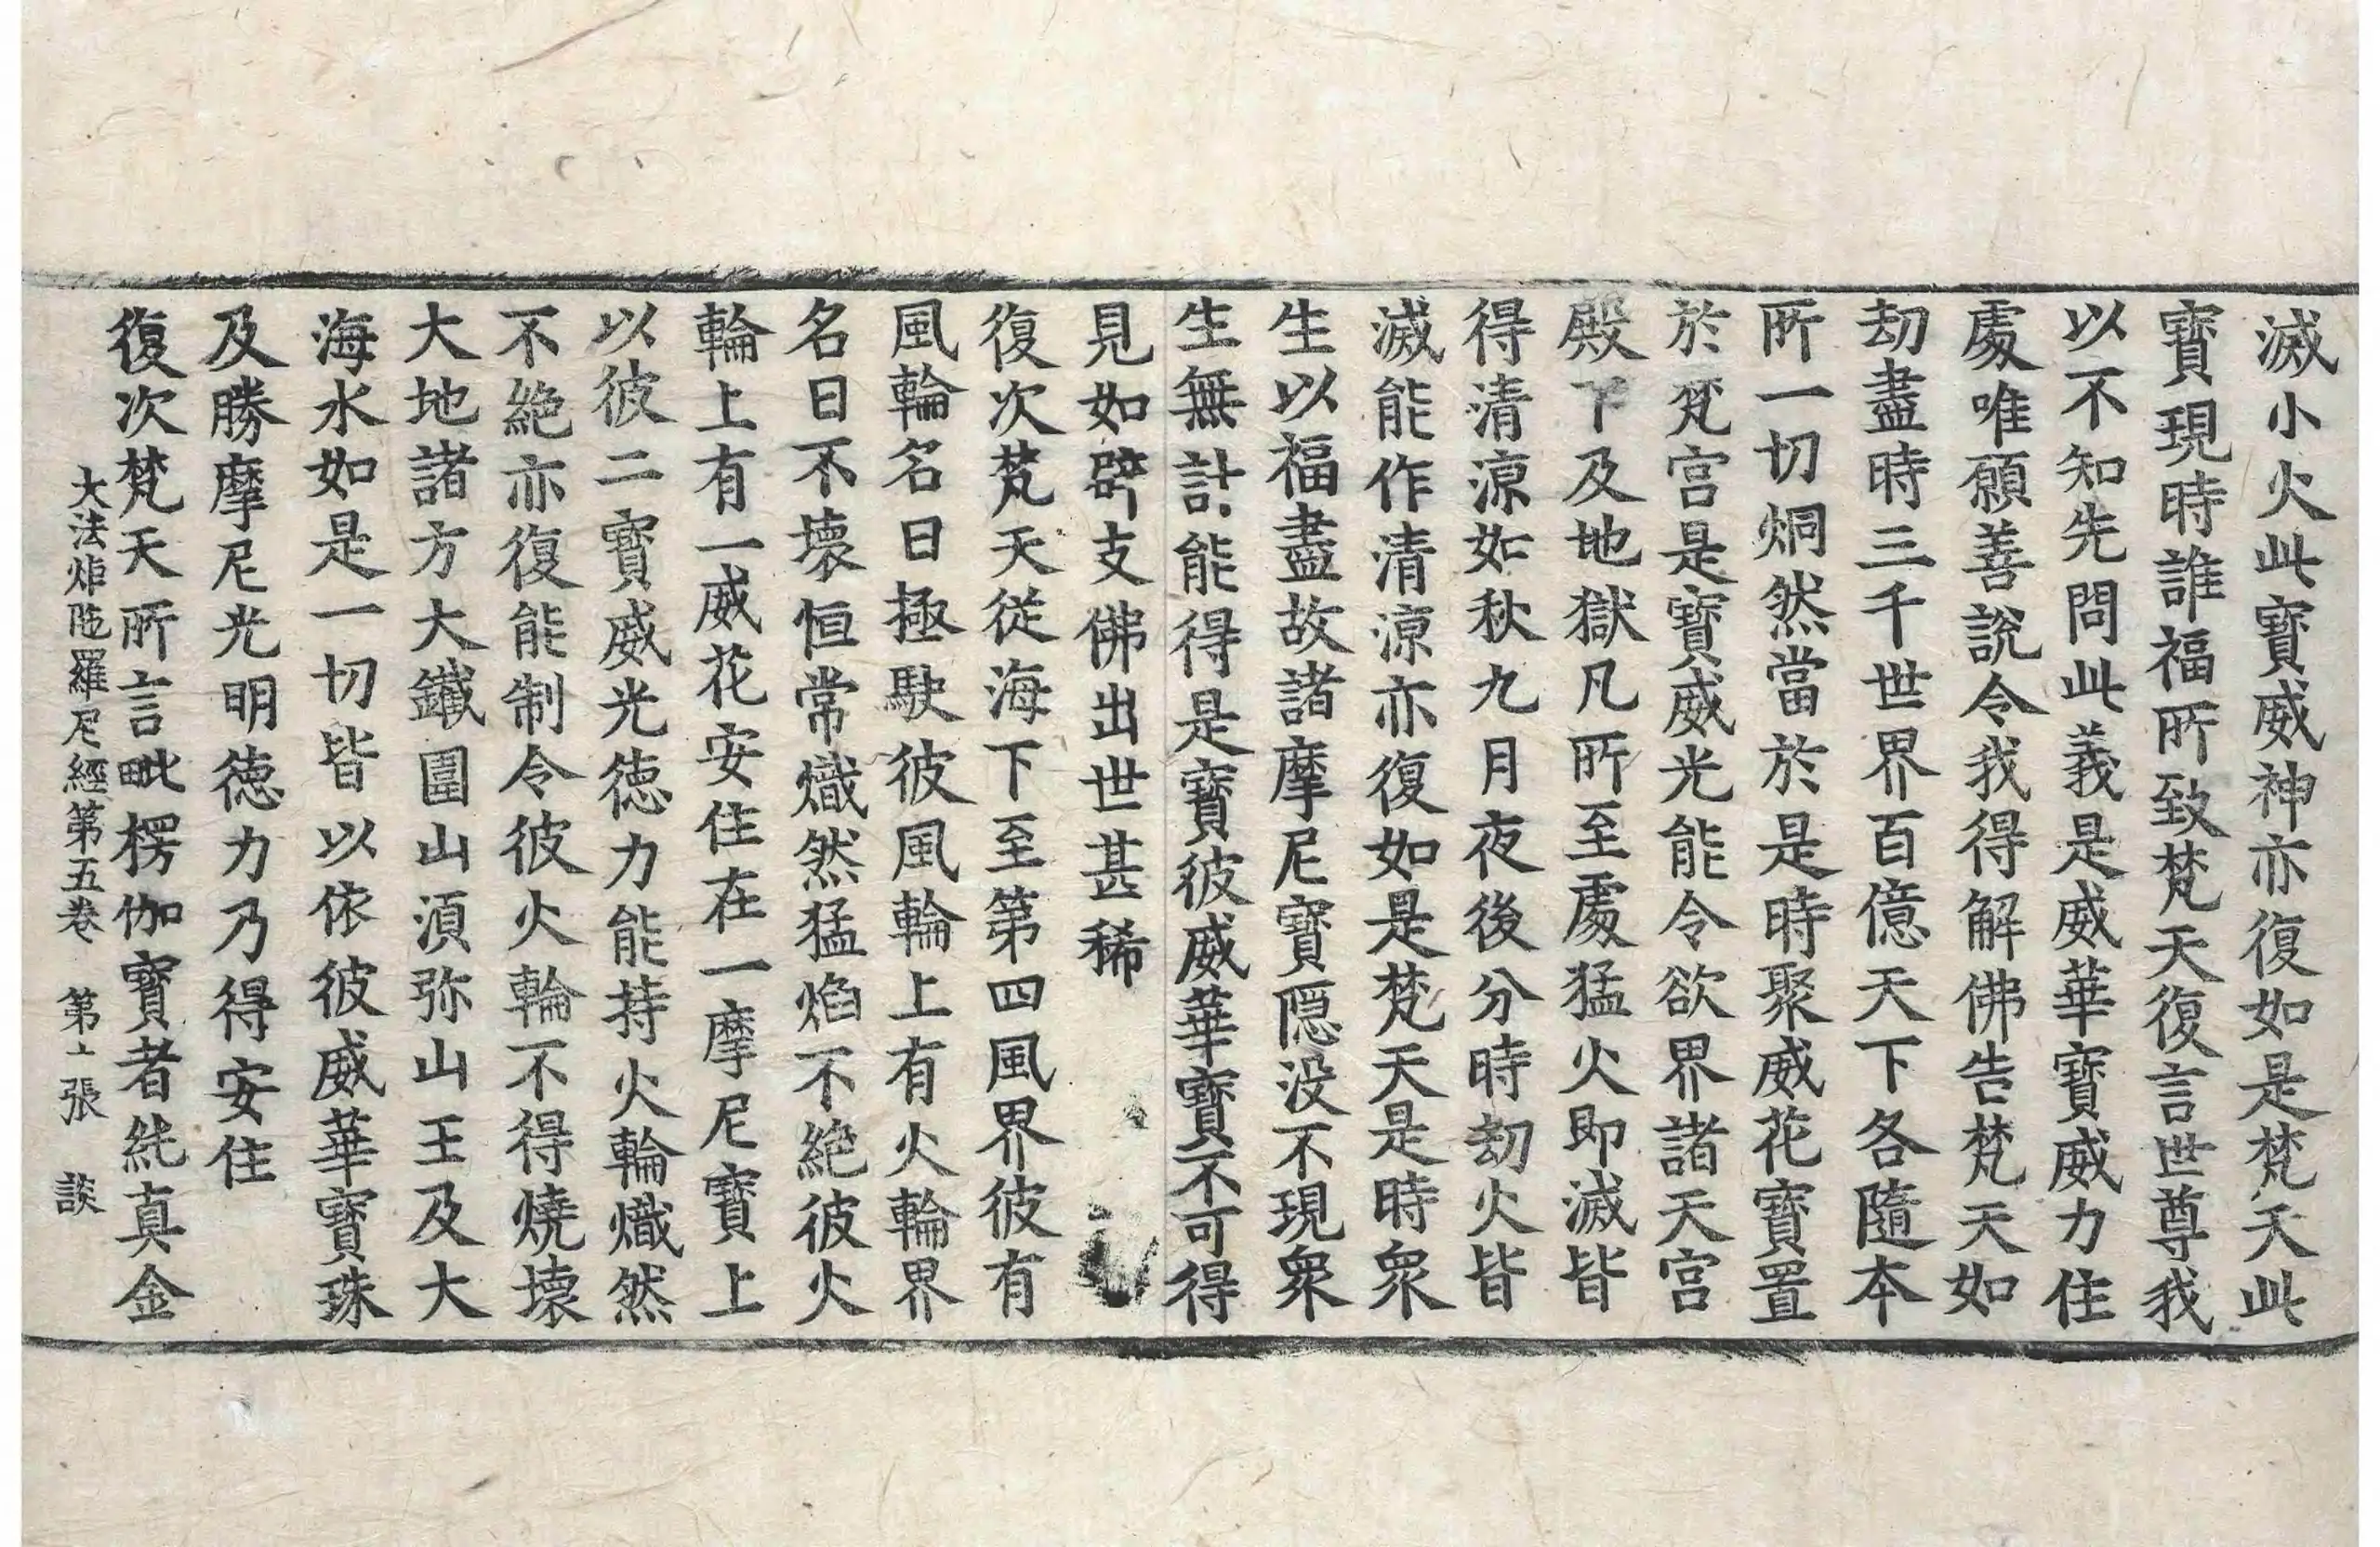 滅小火此寶威神亦復如是梵天此
寶現時誰福所致梵天復言世尊我
以不知先問此義是威華寶威力住
處唯願善說令我得解佛告梵天如
劫盡時三千世界百億天下各隨本
所一切烔然當於是時聚威花寶置
於梵宮是寶威光能令欲界諸天宮
殿下及地獄凡所至處猛火即滅皆
得清涼如秋九月夜後分時劫火皆
滅能作清涼亦復如是梵天是時衆
生以福盡故諸摩尼寶隱没不現衆
生無計能得是寶彼威華寶不可得
見如辟支佛出世甚稀
復次梵天從海下至第四風界彼有
風輪名曰極駛彼風輪上有火輪界
名曰不壞恒常熾然猛焰不絕彼火
輪上有一威花安住在一摩尼寶上
以彼二寶威光德力能持火輪熾然
不絕亦復能制令彼火輪不得燒壞
大地諸方大鐵圍山須弥山王及大
海水如是一切皆以依彼威華寶珠
及勝摩尼光明德力乃得安住
復次梵天所言毗楞伽寶者純真金
大法炬陁羅尼經第五卷 第張 談